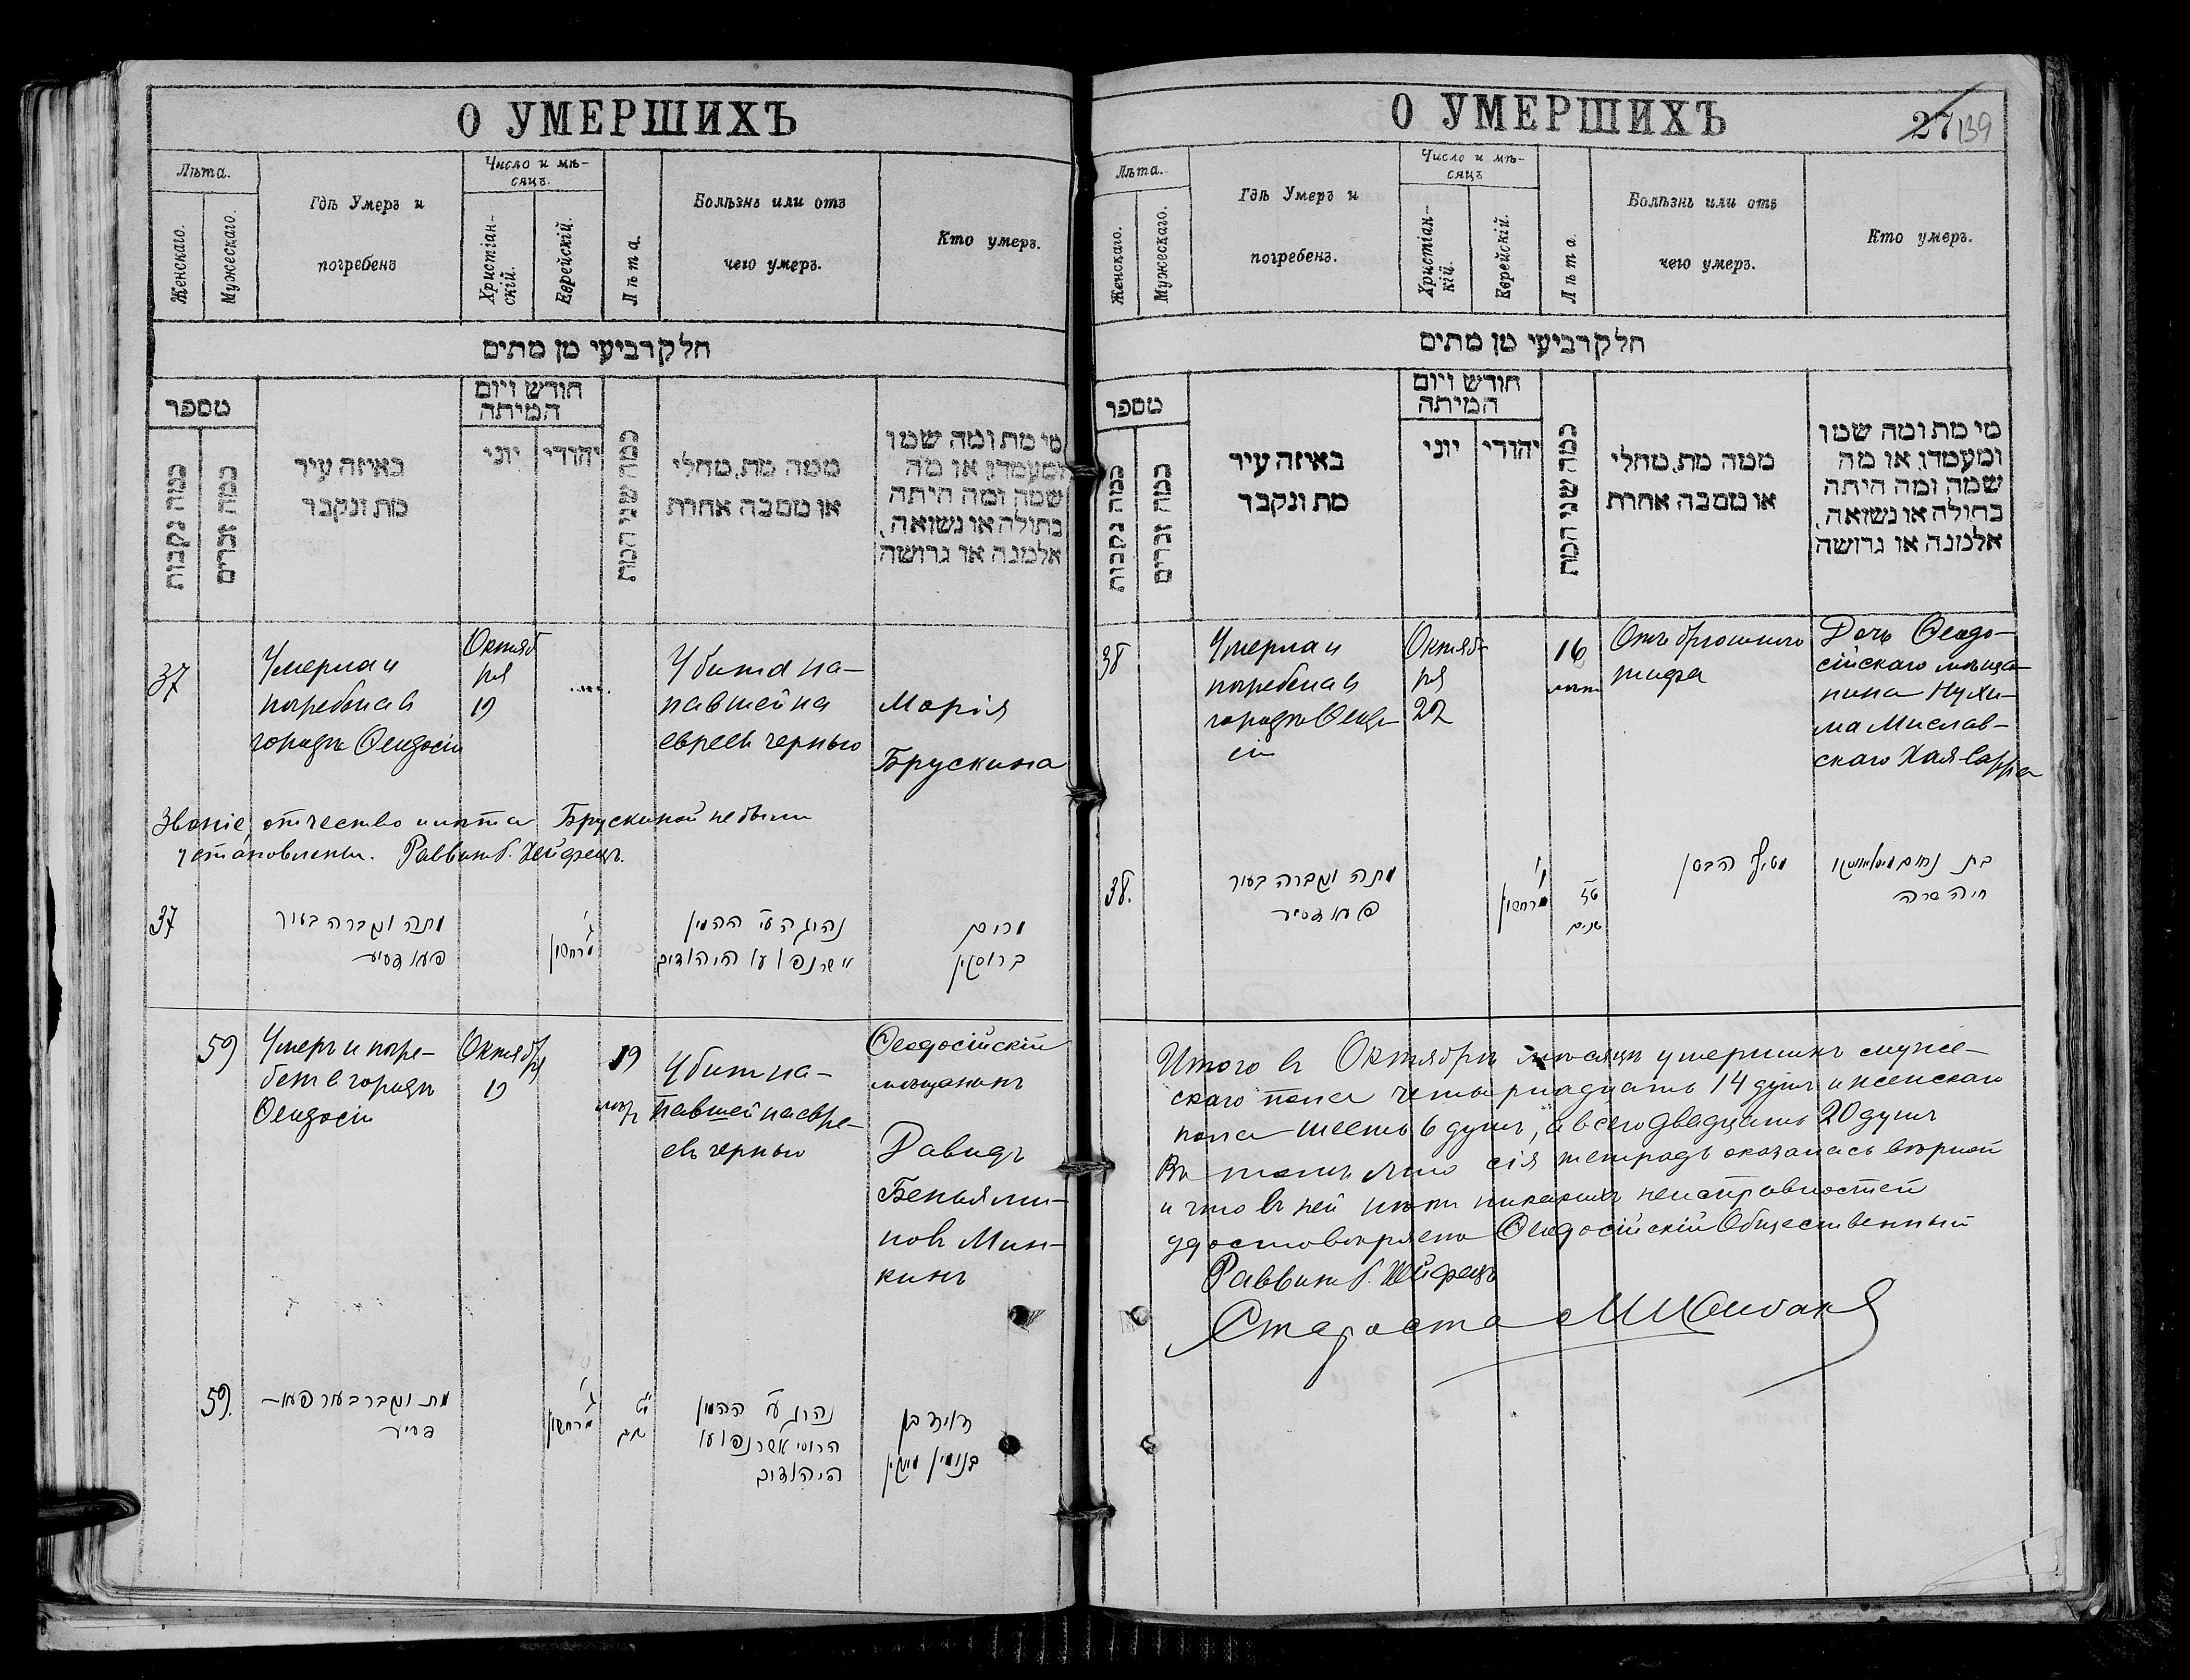 О УМЕРШИХЪ
Лѣта.
Женскаго.
Мужескаго.
Гдѣ Умеръ и
погребенъ
Число и мѣ-
сяцъ.
Христіан-
скій.
Еврейскій.
Лѣта.
Болѣзнь или отъ
чего умеръ.
Кто умеръ.
חלק רביעי מן מתים
מספר
כמה נקבות
כמה זכרים
באיזה עיר
מת ונקבר
חודש ויום
המיתה
יוני
יהודי
כמה שני המת
ממה מת, מחלי
או מסבה אחרת
מי מת ומה שמו
ומעמדו, או מה
שמה ומה היתה
בתולה או נשואה,
אלמנה או גרושה
37
Умерла и
погребена въ
городѣ Ѳеодосіи
Октяб
ря
19
Убита на-
павшей на
евреевъ чернью
Марія
Брускина
Званіе, отчество и лѣта Брускиной не были
установлены. Раввинъ Б. Хейфецъ.
37
מתה ונקברה בעיר
פעאדסיע
ג'
מרחשון
נהרגה ע"י ההמון
אשר נפלו על היהודים
מרים
ברוסקין
59
Умеръ и погре-
бенъ въ городѣ
Ѳеодосіи
Октябр
ря
19
19
лѣтъ
Убитъ на-
павшей на евре-
евъ чернью
Ѳеодосійскій
мѣщанинъ
Давидъ
Беньями-
новъ Мин-
кинъ
59.
מת ונקבר בעיר פעא-
דסיע
ג'
מרחשון
י"ט
שנים
נהרג ע"י ההמון
הרוסי אשר נפלו על
היהודים
דוד בן
בנימין מינקין
О УМЕРШИХЪ
27 139
Лѣта.
Женскаго.
Мужескаго.
Гдѣ Умеръ и
погребенъ.
Число и мѣ-
сяцъ
Христіан-
кій.
Еврейскій.
Лѣта
Болѣзнь или отъ
чего умеръ.
Кто умеръ.
חלק רביעי מן מתים
מספר
כמה נקבות
כמה זכרים
באיזה עיר
מת ונקבר
חודש ויום
המיתה
יוני
יהודי
כמה שני המת
ממה מת, מחלי
או מסבה אחרת
מי מת ומה שמו
ומעמדו, או מה
שמה ומה היתה
בתולה או נשואה,
אלמנה או גרושה
38
Умерла и
погребена въ
городѣ Ѳеодо-
сіи
Октяб-
ря
22
16
лѣтъ
Отъ брюшного
тифа
Дочь Ѳеодо-
сійскаго мѣща-
нина Нухи-
ма Мислав-
скаго Хая-Сарра
38.
מתה ונקברה בעיר
פעאדסיע
ו'
מרחשון
ט"ז
שנים
מטיף הבטן
בת נחום מיסלאווסקי
חיה שרה
Итого въ Октябрѣ мѣсяцѣ умершихъ муже-
скаго пола четырнадцать 14 душъ и женскаго
пола шесть 6 душъ, а всего двадцать 20 душъ
Въ томъ что сія тетрадь оказалась вѣрной
и что въ ней нѣтъ никакихъ неисправностей
удостовѣряетъ Ѳеодосійскій Общественный
Раввинъ Б. Хейфецъ
Староста